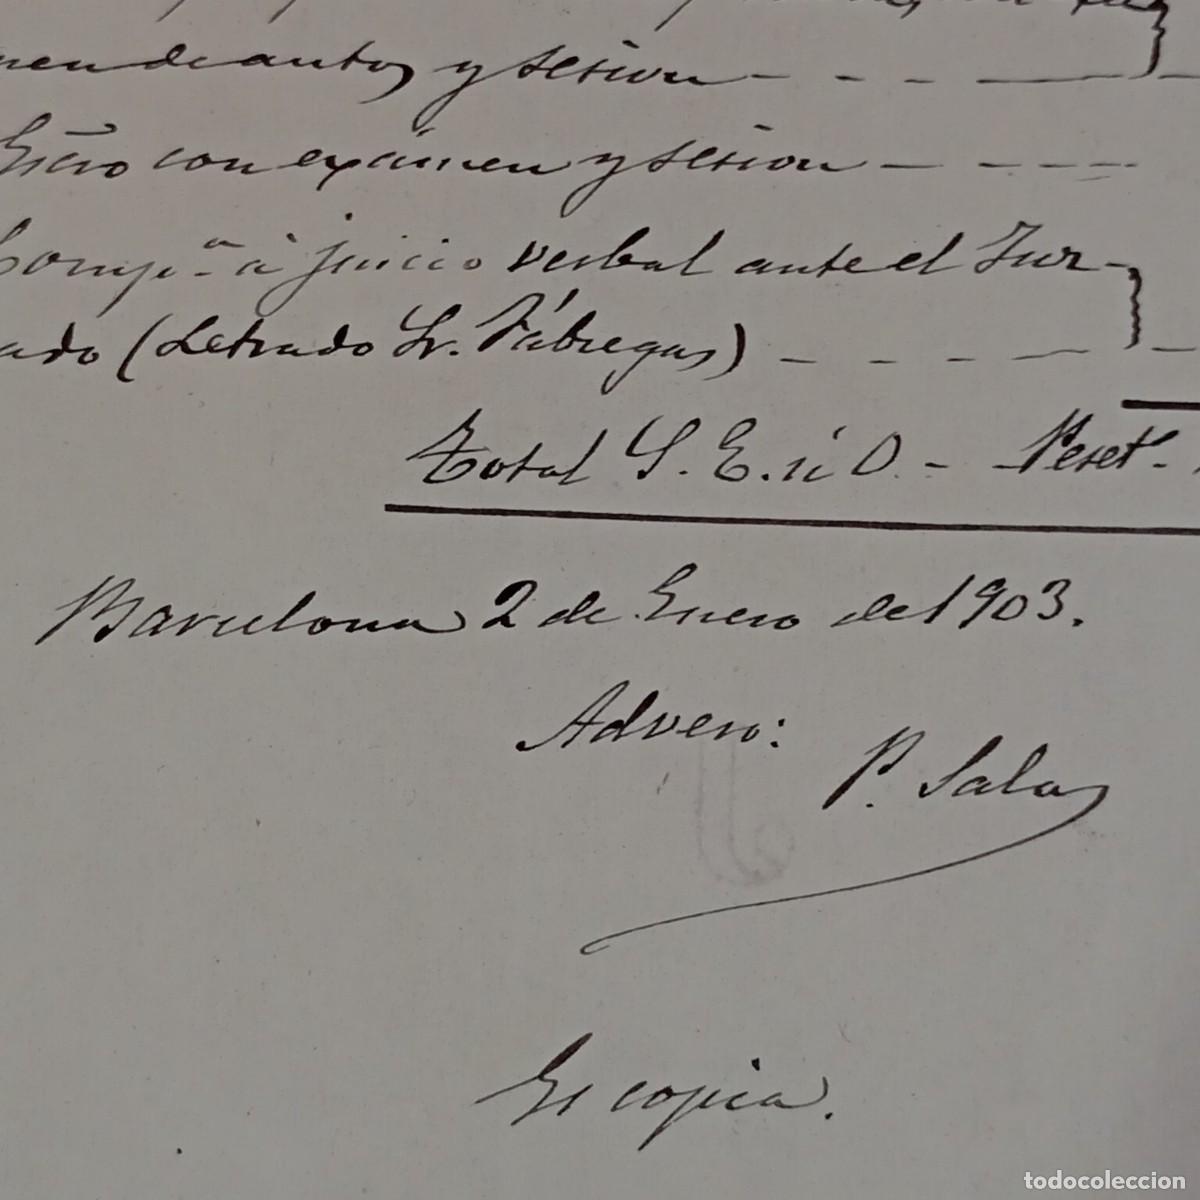 men de autos y sesion - - - -
con exámen y sesion - - - -
Comp.ª á juicio verbal ante el Juz-
ado (Letrado Sr. Fábregas) - - - -
Total S. E. ú O. - - Peset.
Barcelona 2 de Enero de 1903.
Advero:
P. Salas
Es copia.
todocoleccion